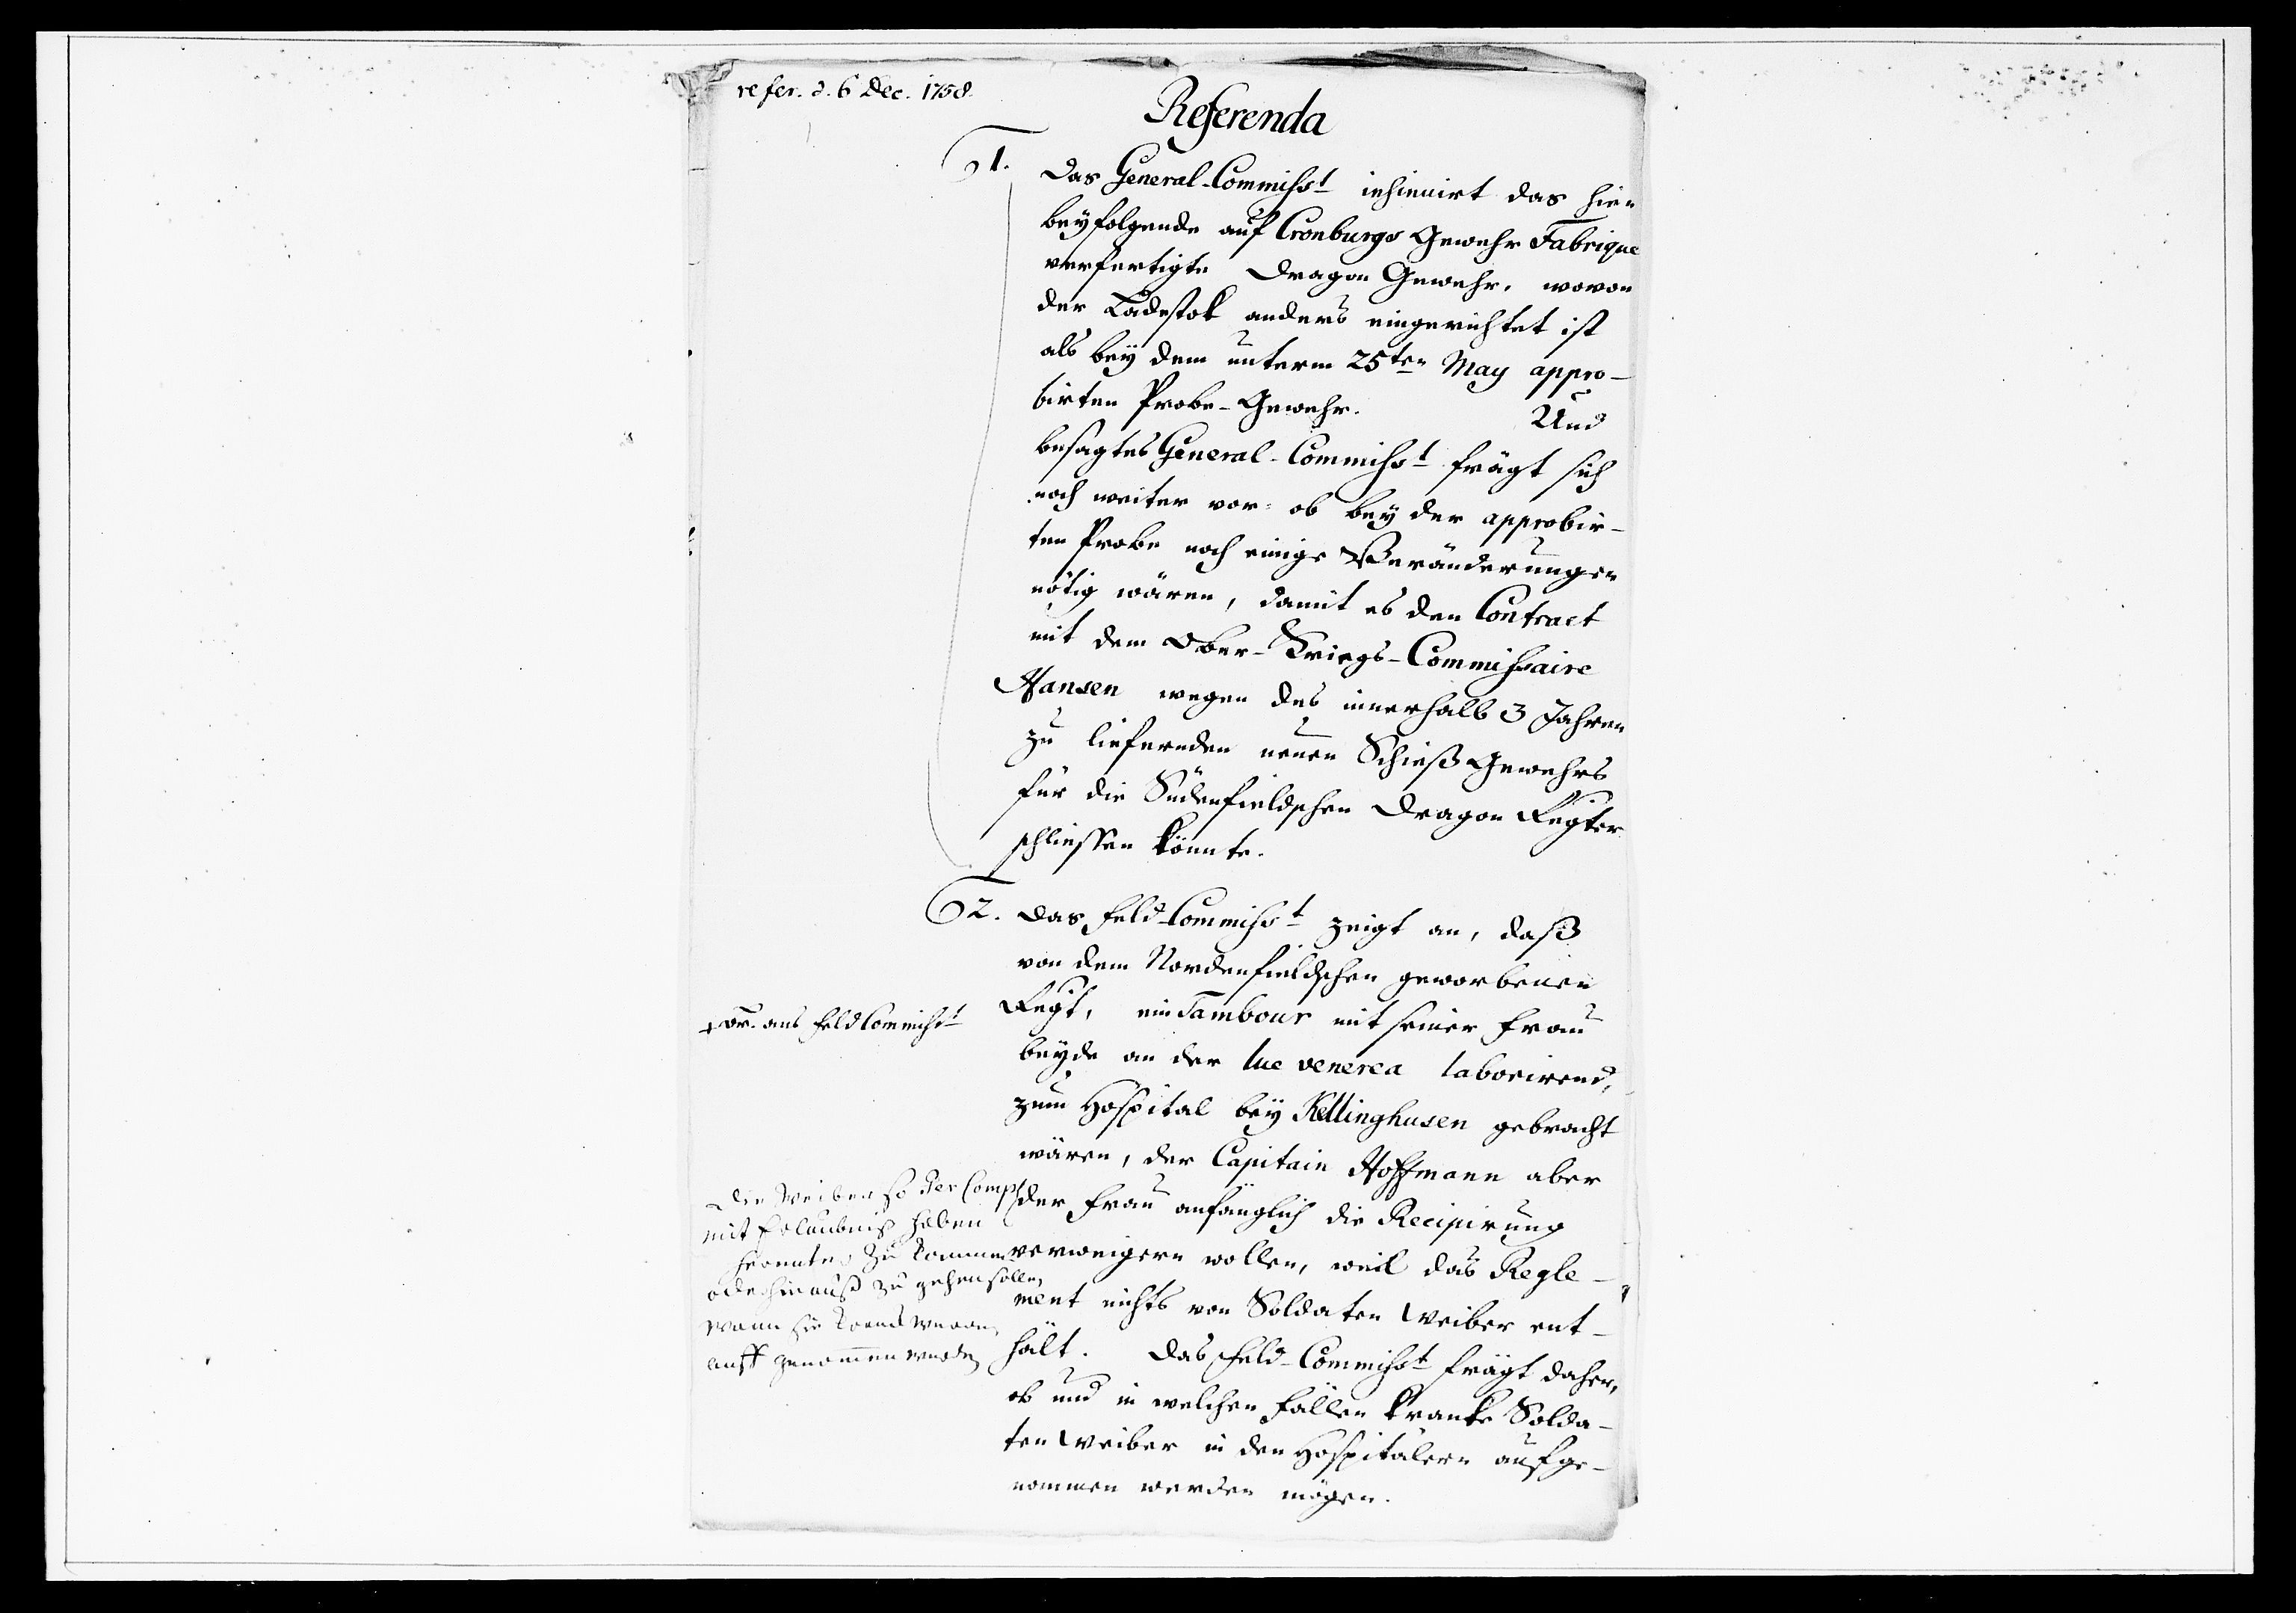 refer. d. 6 Dec. 1758.
Referenda
1. Das General-Commisst insinuirt das hier
beyfolgende auf Cronburgs Gewehr Fabrique
verfertigte Dragon Gewehr, wovon
der Ladestok anders eingerichtet ist
als bey dem unterm 25ten May appro-
birten Probe-Gewehr. Und
besagtes General-Commisst frägt sich
noch weiter vor ob bey der approbir-
ten Probe noch einige Veränderungen
nötig wären, damit es den Contract
mit dem Ober-Kriegs-Commissaire
Hansen wegen des innerhalb 3 Jahren
zu liefernden neuen Schieß Gewehrs
für die Südenfieldschen Dragon Regter
schliessen könnte.
2. Das Feld-Commisst zeigt an, daß
von dem Nordenfieldschen geworbenen
Regt, ein Tambour mit seiner Frau
beyde an der lue venerea laborirend,
zum Hospital bey Kellinghusen gebracht
wären, der Capitain Hoffmann aber
der Frau anfänglich die Recipirung
verweigern wollen, weil das Regle-
ment nichts von Soldaten Weiber ent-
hält. Das Feld-Commisst frägt daher,
ob und in welchen Fällen kranke Solda-
ten Weiber in den Hospitälern aufge-
nommen werden mögen.
or. ans Feld Commisst
Die Weiber so der Comp
mit Erlaubniß haben
zu kommen
oder hinauß zu gehen sollen
wann sie krank werden
auff genommen werden